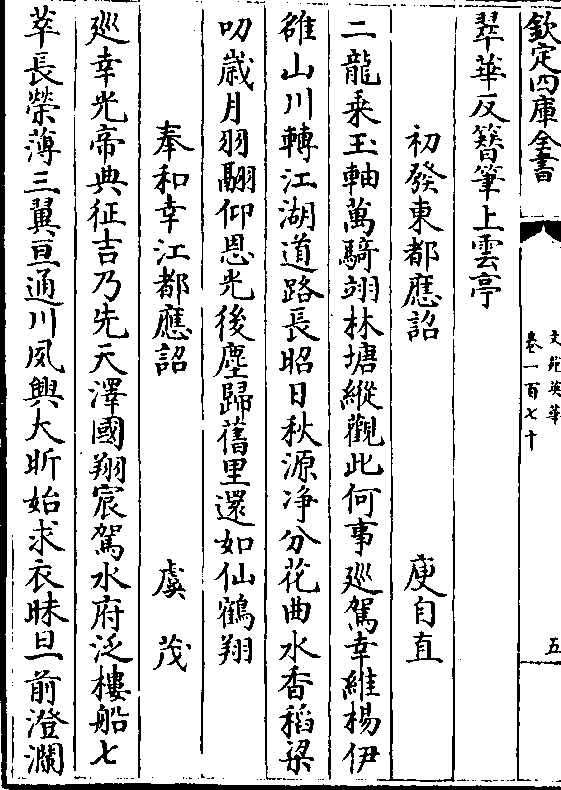 欽定四庫全書
文苑英華
卷一百七十
五
翠華反簪筆上雲亭
初發東都應詔
庾自直
二龍乗玉軸萬騎翊林塘縱觀此何事廵駕幸維楊伊
雒山川轉江湖道路長昭日秋源浄分花曲水香稻梁
叨嵗月羽翮仰恩光後塵歸舊里還如仙鶴翔
奉和幸江都應詔
虞茂
廵幸光帝典征吉乃先天澤國翔宸駕水府泛樓船七
萃長榮薄三翼亘通川夙興大昕始求衣昧旦前澄瀾